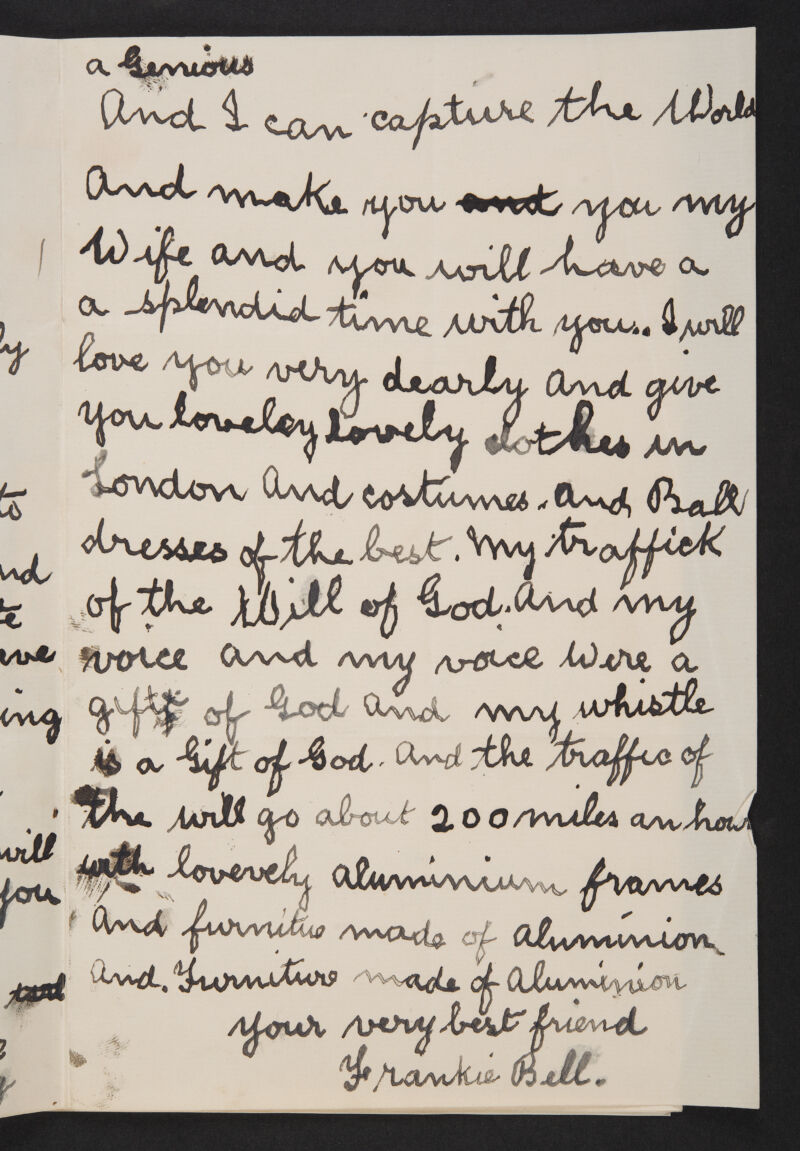 a Genious
And I can capture the World
And make you and you my
Wife and you will have a
a splendid time with you.. I will
love you very dearly And give
you loveley lovely clothes in
London And costumes. And Ball
dresses of the best. My traffick
of the Will of God. And my
voice and my voice Were a
gift of God and my whistle
is a Gift of God. And the traffic of
the will go about 200 miles an hour
with lovevely aluminium frames
And furnitue made of aluminion
And. Furniture made of Aluminion
your very best friend
Frankie Bell.
ly
to
nd
te
ave
ing
will
you